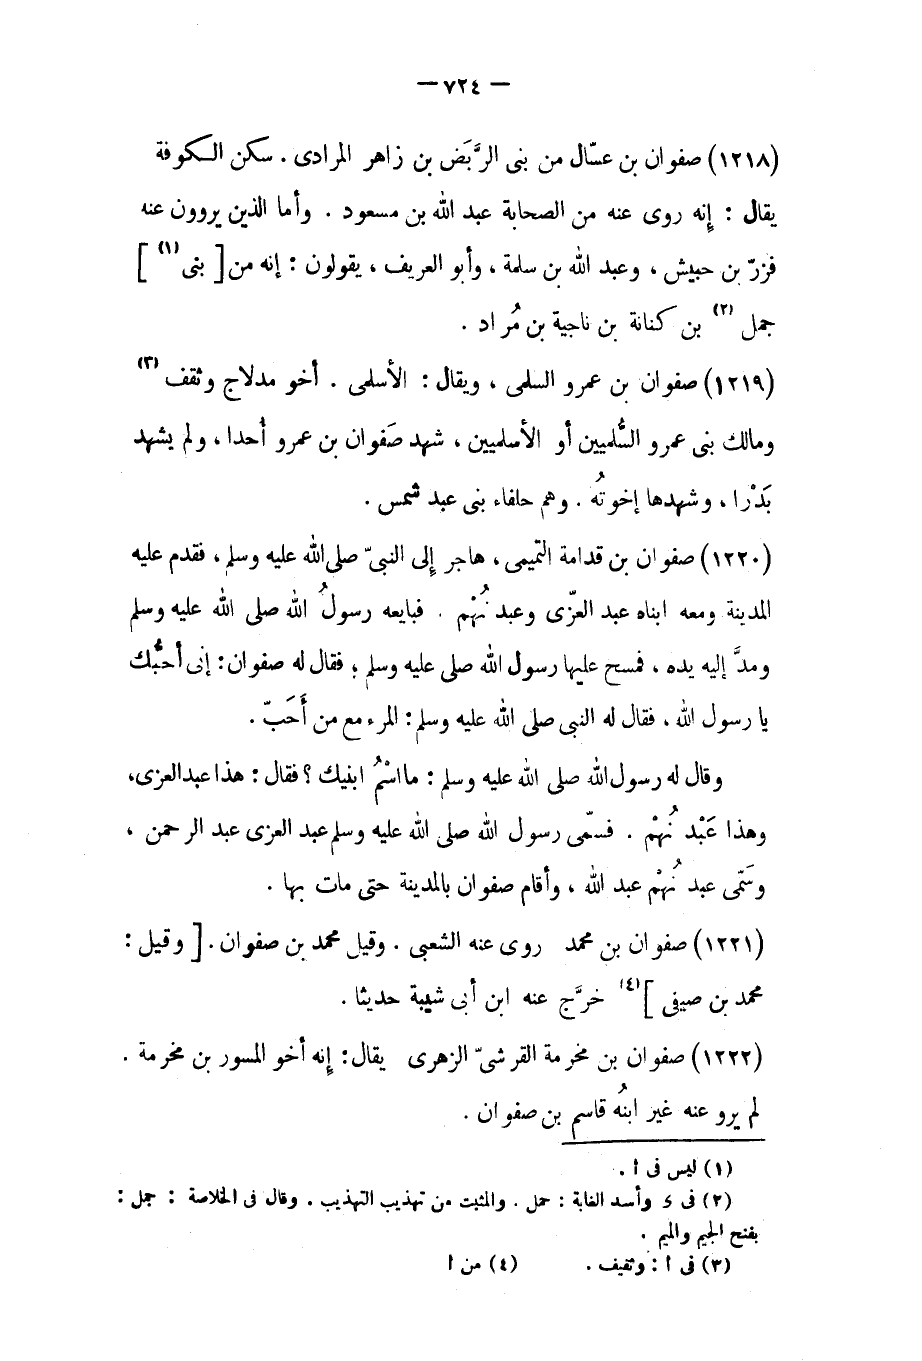 — ٧٢٤ —
(١٢١٨) صفوان بن عسّال من بنى الرَّبَض بن زاهر المرادى . سكن الكوفة
يقال : إنه روى عنه من الصحابة عبد الله بن مسعود . وأما الذين يروون عنه
فزرّ بن حبيش ، وعبد الله بن سلمة ، وأبو العريف ، يقولون : إنه من [ بنى (١) ]
جمل (٢) بن كنانة بن ناجية بن مُراد .
(١٢١٩) صفوان بن عمرو السلمى ، ويقال : الأسلمى . أخو مدلاج وثقف (٣)
ومالك بنى عمرو السُّلميين أو الأسلميين ، شهد صَفوان بن عمرو أُحدا ، ولم يشهد
بَدْرا ، وشهدها إخوتُه . وهم حلفاء بنى عبد شمس .
(١٢٢٠) صفوان بن قدامة التميمى ، هاجر إلى النبىّ صلى الله عليه وسلم ، فقدم عليه
المدينة ومعه ابناه عبد العزّى وعبد نُهْم . فبايعه رسولُ الله صلى الله عليه وسلم
ومدَّ إليه يده ، فمسح عليها رسول الله صلى عليه وسلم ؛ فقال له صفوان : إنى أحبُّك
يا رسول الله ، فقال له النبى صلى الله عليه وسلم : المرء مع من أَحَبّ .
وقال له رسول الله صلى الله عليه وسلم : ما اسْمُ ابنيك ؟ فقال : هذا عبد العزى ،
وهذا عَبْد نُهْم . فسمّى رسول الله صلى الله عليه وسلم عبد العزى عبد الرحمن ،
وسَمّى عبد نُهْم عبد الله ، وأقام صفوان بالمدينة حتى مات بها .
(١٢٢١) صفوان بن محمد روى عنه الشعبى . وقيل محمد بن صفوان . [ وقيل :
محمد بن صيفى ] (٤) خرَّج عنه ابن أبى شيبة حديثا .
(١٢٢٢) صفوان بن مخرمة القرشىّ الزهرى يقال : إنه أخو المسور بن مخرمة .
لم يرو عنه غير ابنُه قاسم بن صفوان .
(١) ليس فى ا .
(٢) فى ى وأسد الغابة : حمل . والمثبت من تهذيب التهذيب . وقال فى الخلاصة : جمل :
بفتح الجيم والميم .
(٣) فى ا : وثقيف . (٤) من ا